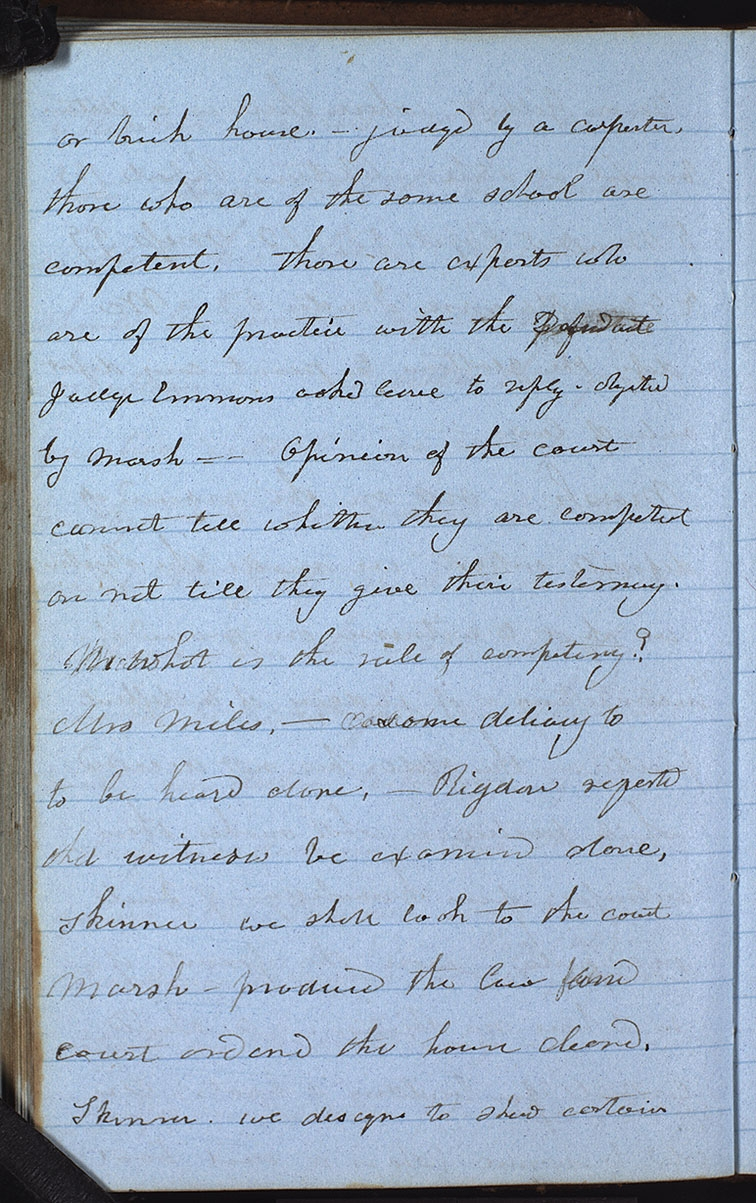 or brick house. — judged by a carpenter.
those who are of the same school are
competent. those are experts who
are of the practice with the Defendant
Judge Emmons asked leave to reply - objected
by Marsh —— Opinion of the court
cannot tell whether they are competent
or not till they give their testimony.
what is the rule of competency?
Mrs Miles, — some delicacy to
to be heard alone, — Rigdon requested
that witness be examined alone,
Skinner we shall look to the court
Marsh - produced the law and
court ordered the house cleared.
Skinner. we designe to shew certain